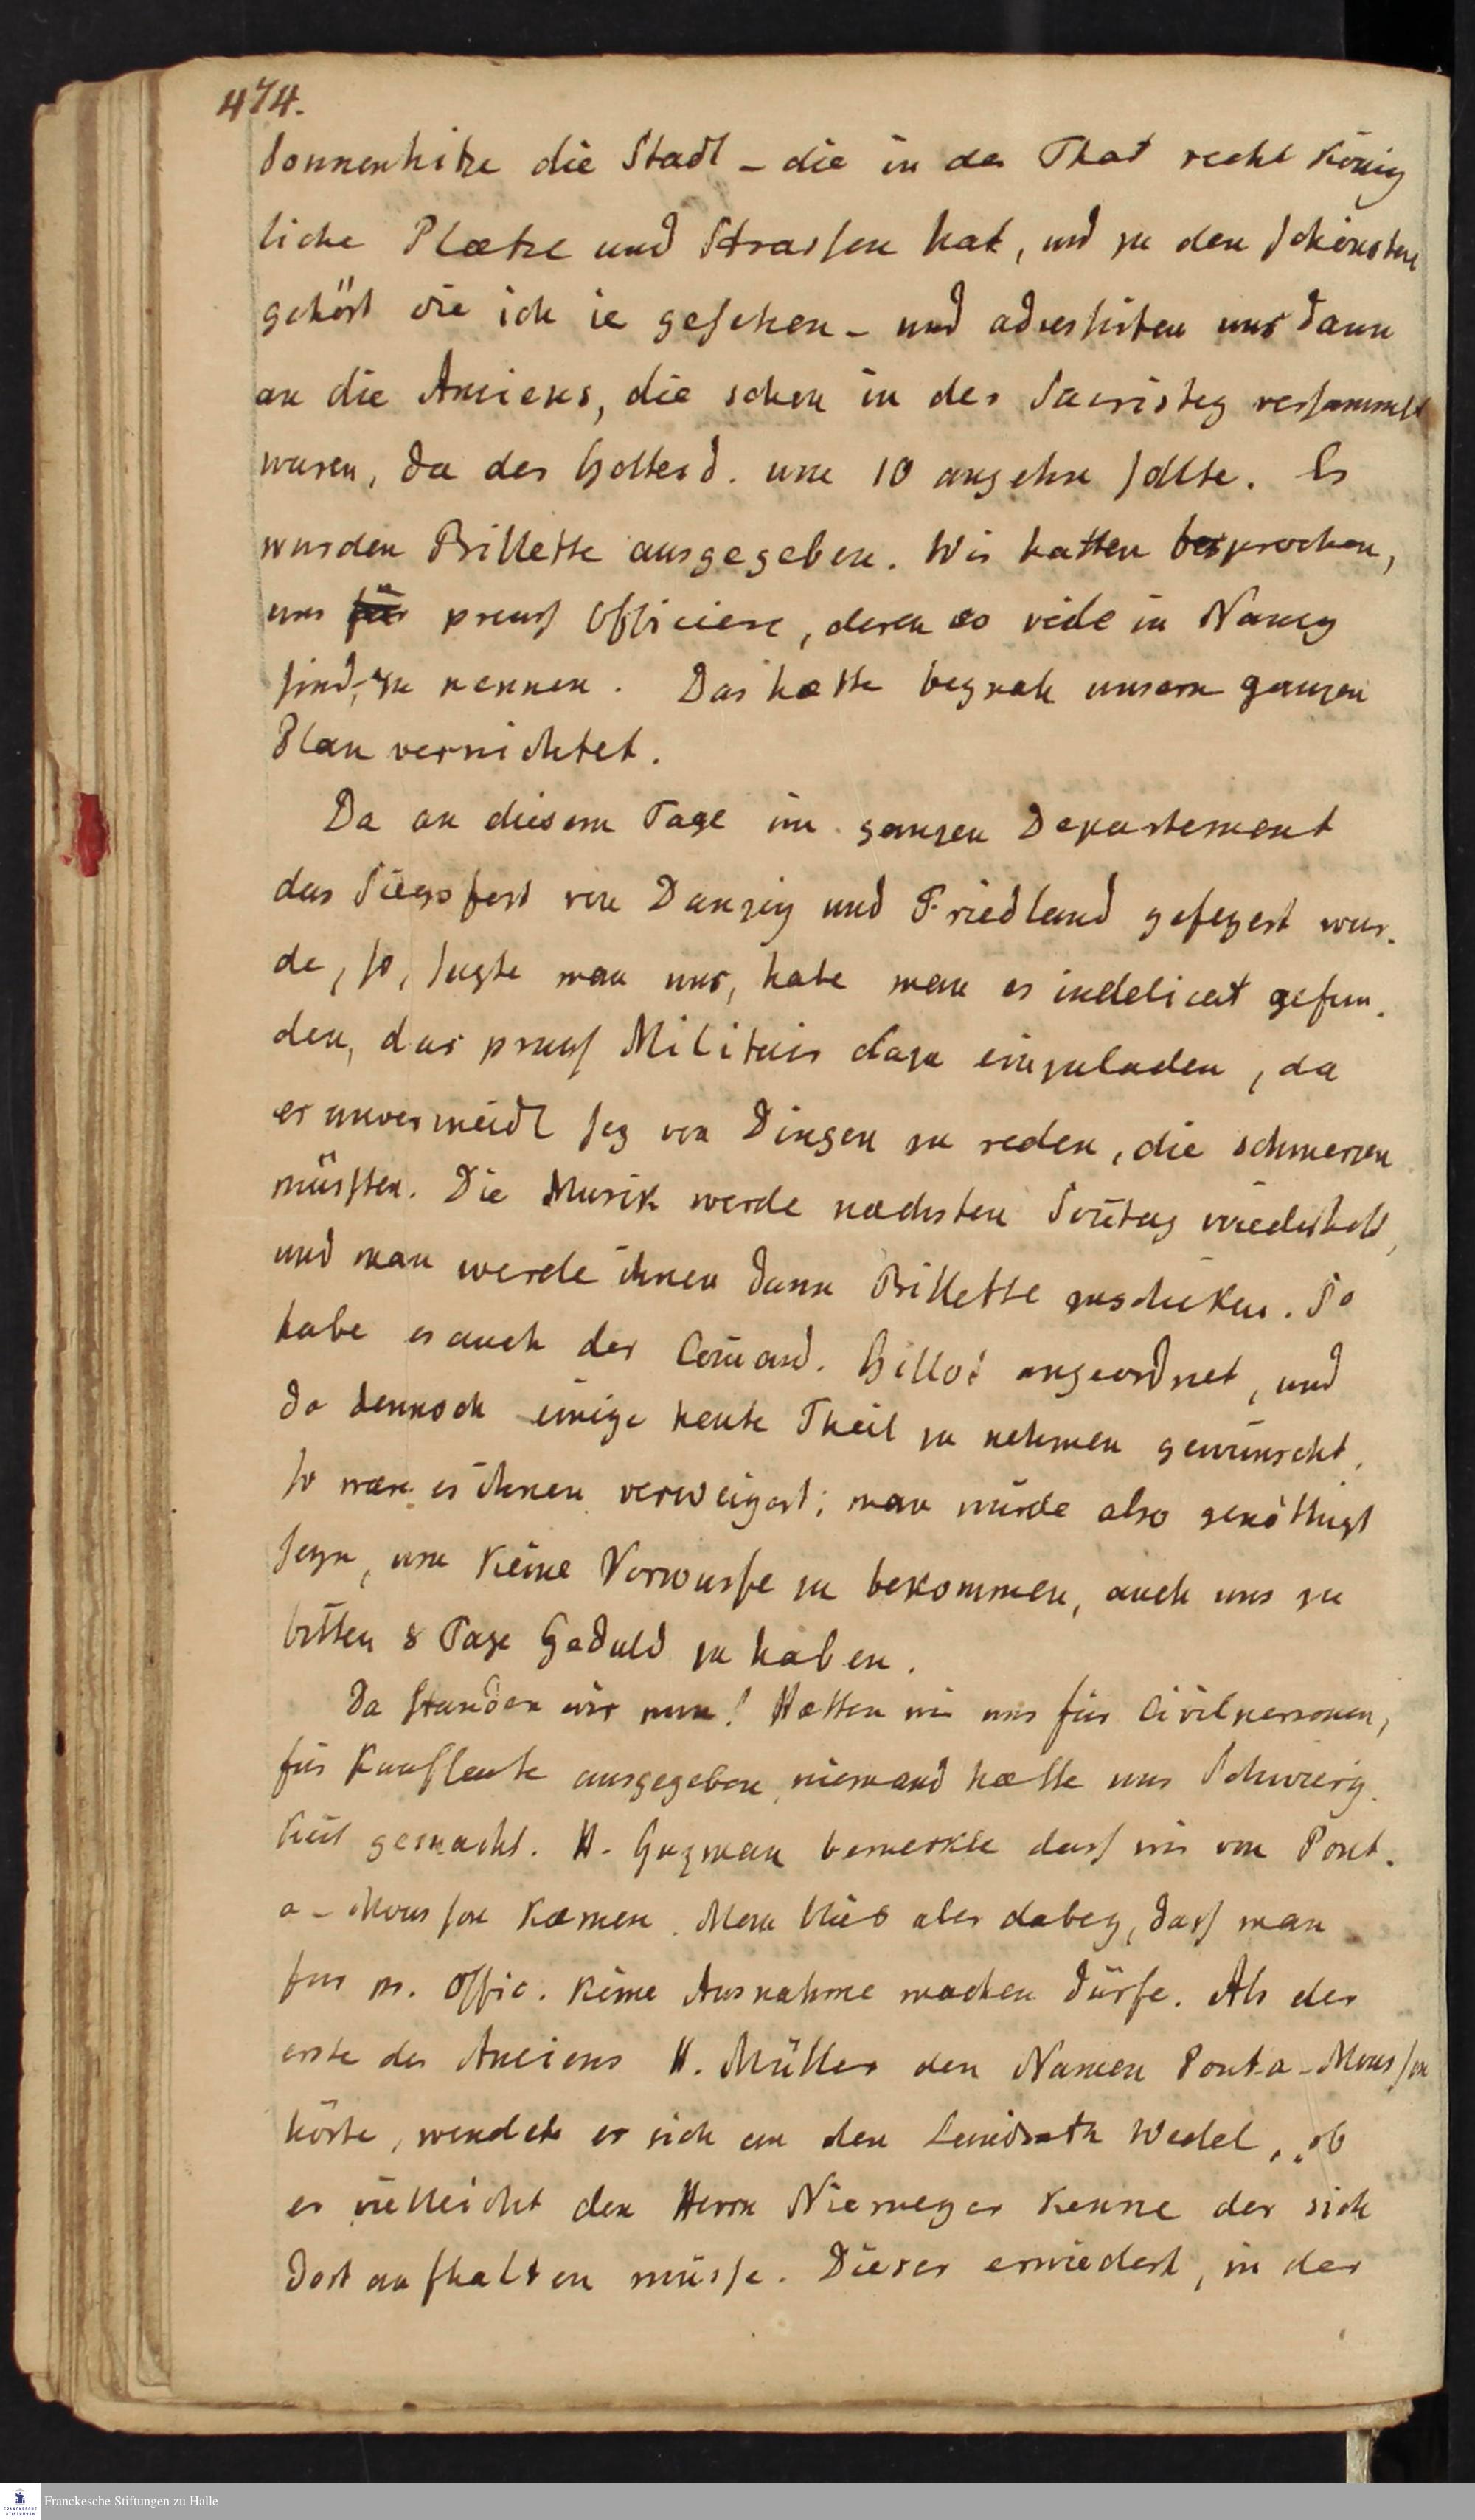 474.
Sonnenhitze die Stadt – die in der That recht könig
liche Plætze und Strassen hat, und zu den schönsten
gehört die ich ie gesehen – und adressirten uns dann
an die Anciens, die schon in der Sacristey versammelt
waren, da der Gottesd. um 10 angehn sollte. Es
wurden Billette ausgegeben. Wir hatten besprochen,
uns für preuss Officiere, deren so viele in Nancy
sind, zu nennen. Das hætte beynah unsern ganzen
Plan vernichtet.
Da an diesem Tage im ganzen Departement
das Siegsfest von Danzig und Friedland gefeyert wur-
de, so, sagte man uns, habe man es indelicat gefun-
den, das preuss Militair dazu einzuladen, da
es unvermeidl sey von Dingen zu reden, die schmerzen
müssten. Die Musik werde næchsten Soñtag wiederholt,
und man werde ihnen dann Billette zuschicken. So
habe es auch der Com̃and. Gillot angeordnet, und
da dennoch einige heute Theil zu nehmen gewünscht,
so wære es ihnen verweigert; man würde also genöthigt
seyn, um keine Vorwurfe zu bekommen, auch uns zu
bitten 8 Tage Geduld zu haben.
Da standen wir nun! Hætten wir uns für Civilpersonen,
für Kaufleute ausgegeben, niemand hætte uns Schwierig-
keit gemacht. H. Guzman bemerkte dass wir von Pont-
a-Mousson kæmen. Man blieb aber dabey, dass man
fur pr. Offic. keine Ausnahme machen dürfe. Als der
erste der Anciens H. Müller den Namen Pont-a-Mousson
hörte, wendete er sich an den Landrath Wedel, ob
er vielleicht den Herrn Niemeyer kenne der sich
dort aufhalten müsse. Dieser erwiedert, in der
Franckesche Stiftungen zu Halle